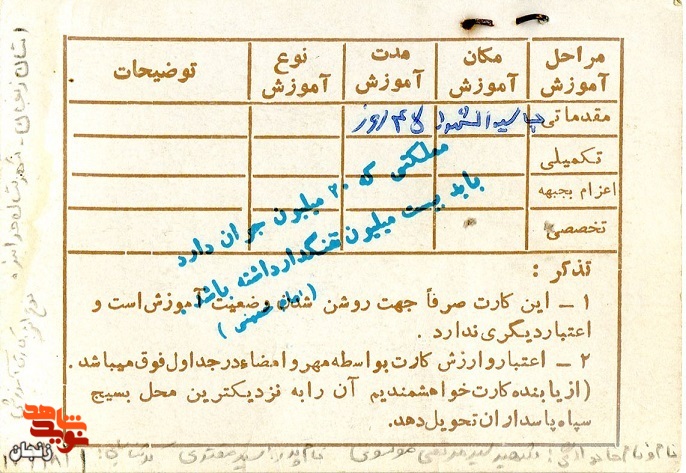 مراحل آموزش
مکان آموزش
مدت آموزش
نوع آموزش
توضیحات
مقدماتی
سیدالشهدا
۴۵ روز
تکمیلی
اعزام بجبهه
تخصصی
مملکتی که ۲۰ میلیون جوان دارد
باید بیست میلیون تفنگدار داشته باشد.
(امام خمینی)
تذکر :
۱ – این کارت صرفاً جهت روشن شدن وضعیت آموزش است و
اعتبار دیگری ندارد .
۲ – اعتبار و ارزش کارت بواسطه مهر و امضاء در جداول فوق میباشد .
(از یابنده کارت خواهشمندیم آن را به نزدیکترین محل بسیج
سپاه پاسداران تحویل دهد.
نام و نام خانوادگی: شهید سید مرتضی موسوی نام پدر:
استان زنجان -
شاهد
نوید
زنجان